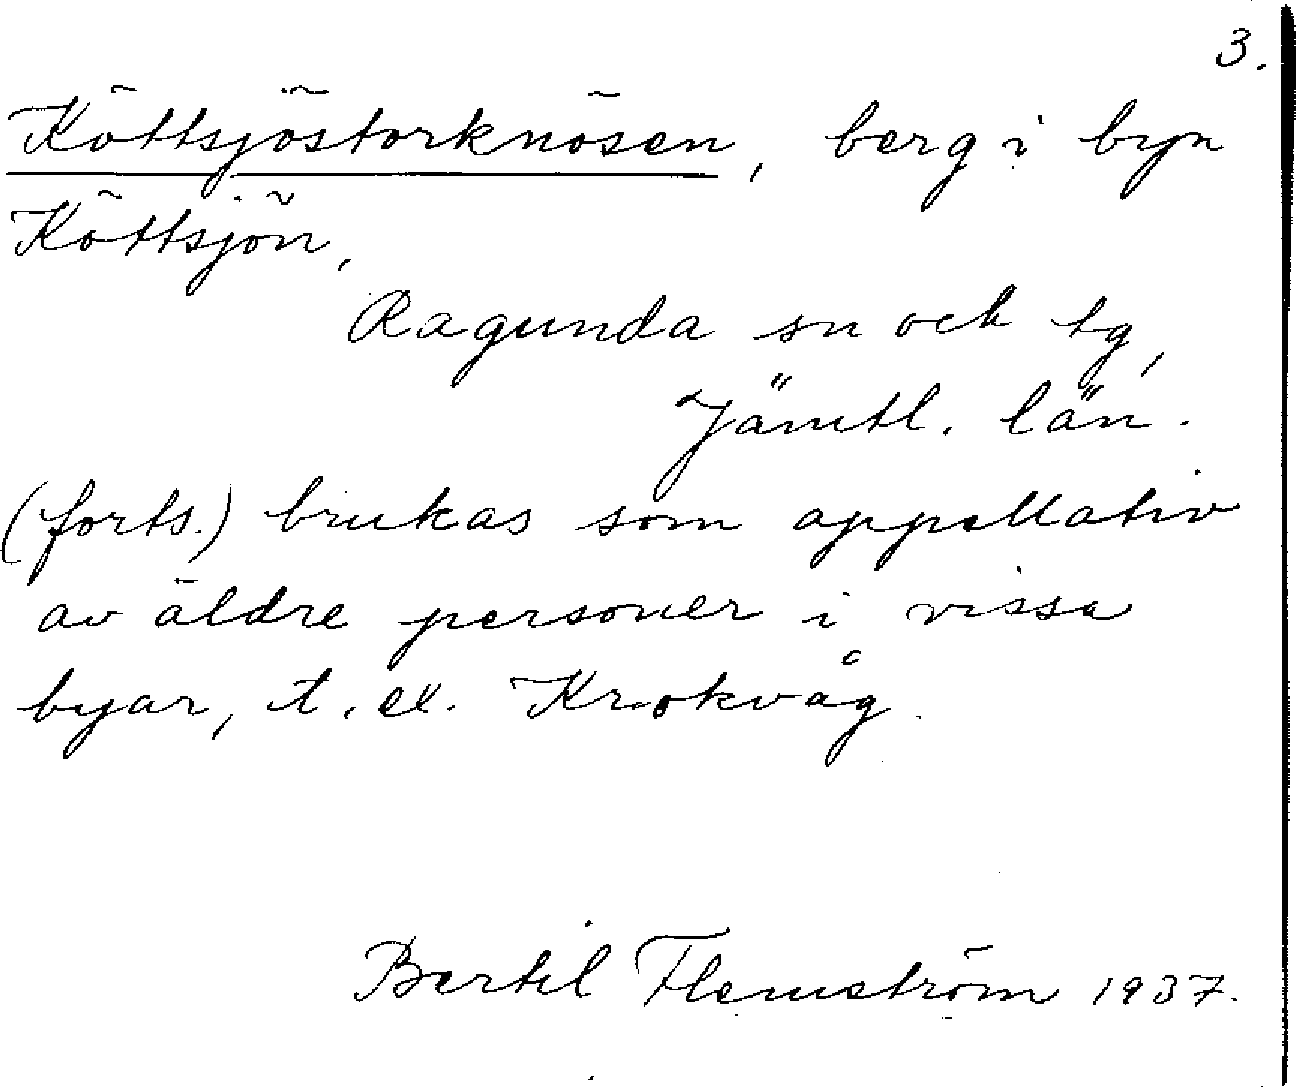 3.
Köttsjöstorknösen, berg i byn
Köttsjön,
Ragunda sn och tg,
Jämtl. län.
(forts.) brukas som appellativ
av äldre personer i vissa
byar, t. ex. Krokvåg.
Bertil Flemström 1937.